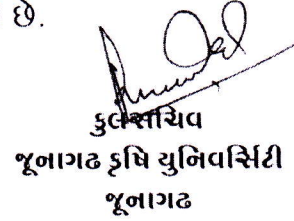 છે.
કુલસચિવ
જૂનાગઢ કૃષિ યુનિવર્સિટી
જૂનાગઢ